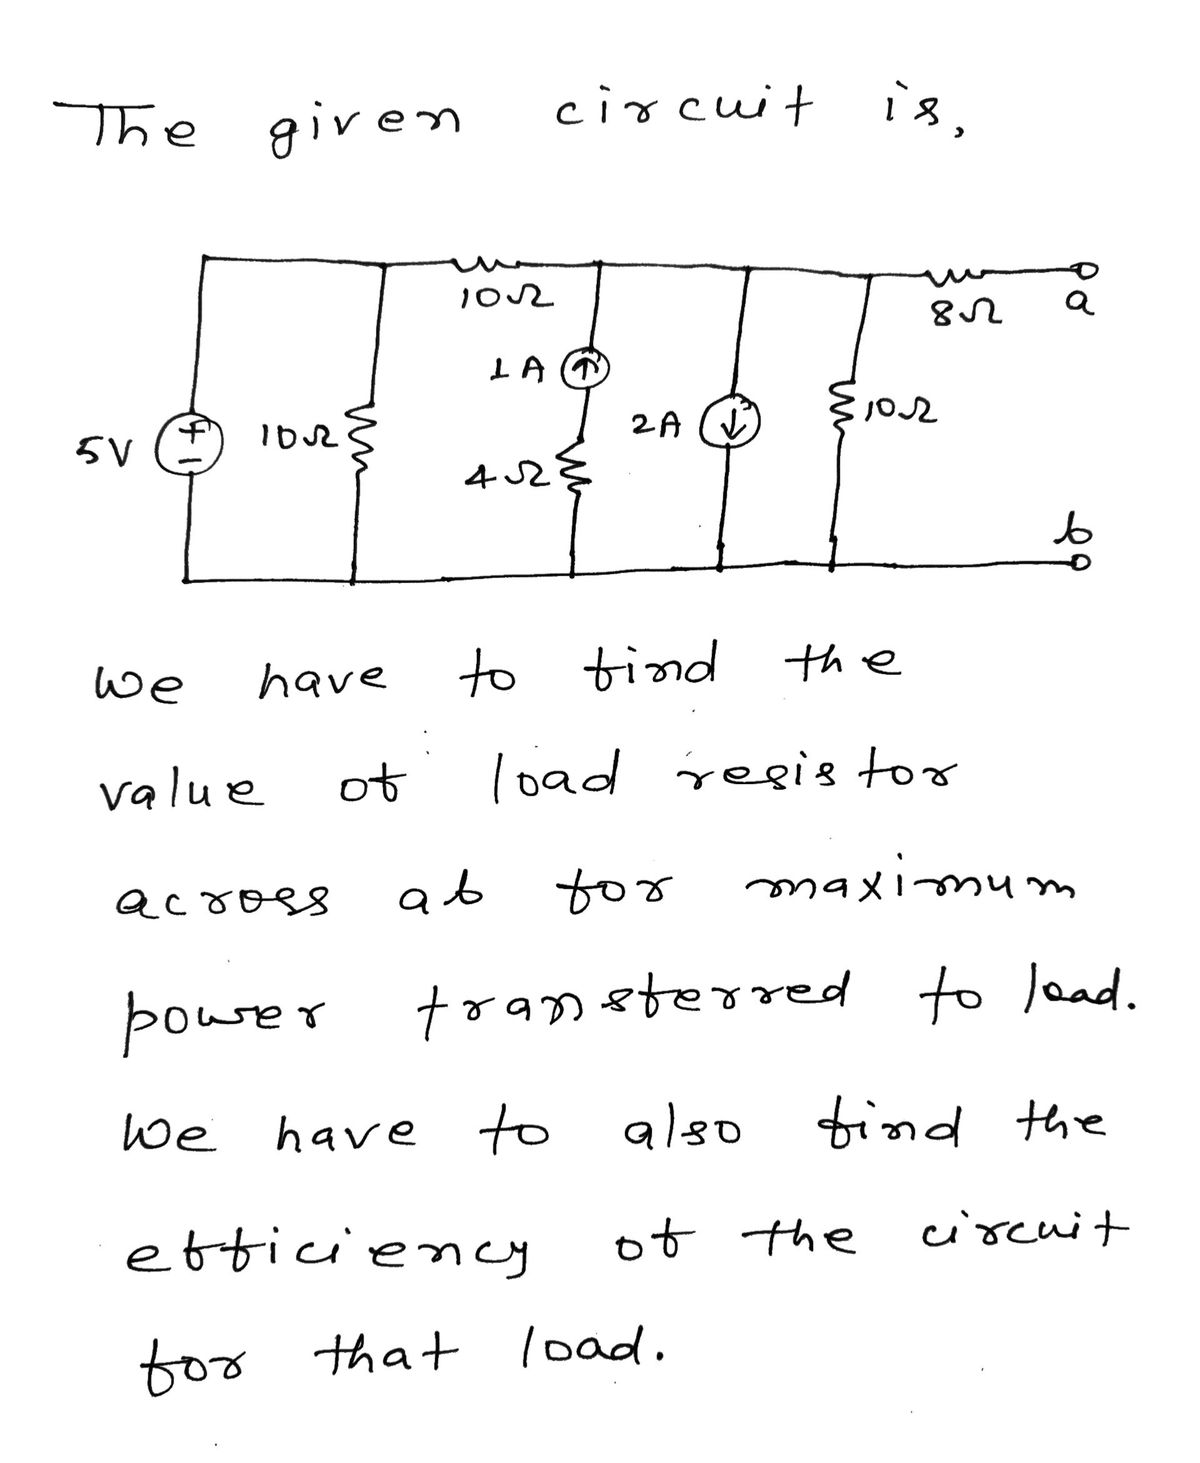 The given circuit is,
10Ω
8Ω
a
1A
5V
+
-
10Ω
2A
10Ω
4Ω
b
We have to find the
value of load resistor
across ab for maximum
power transferred to load.
We have to also find the
efficiency of the circuit
for that load.